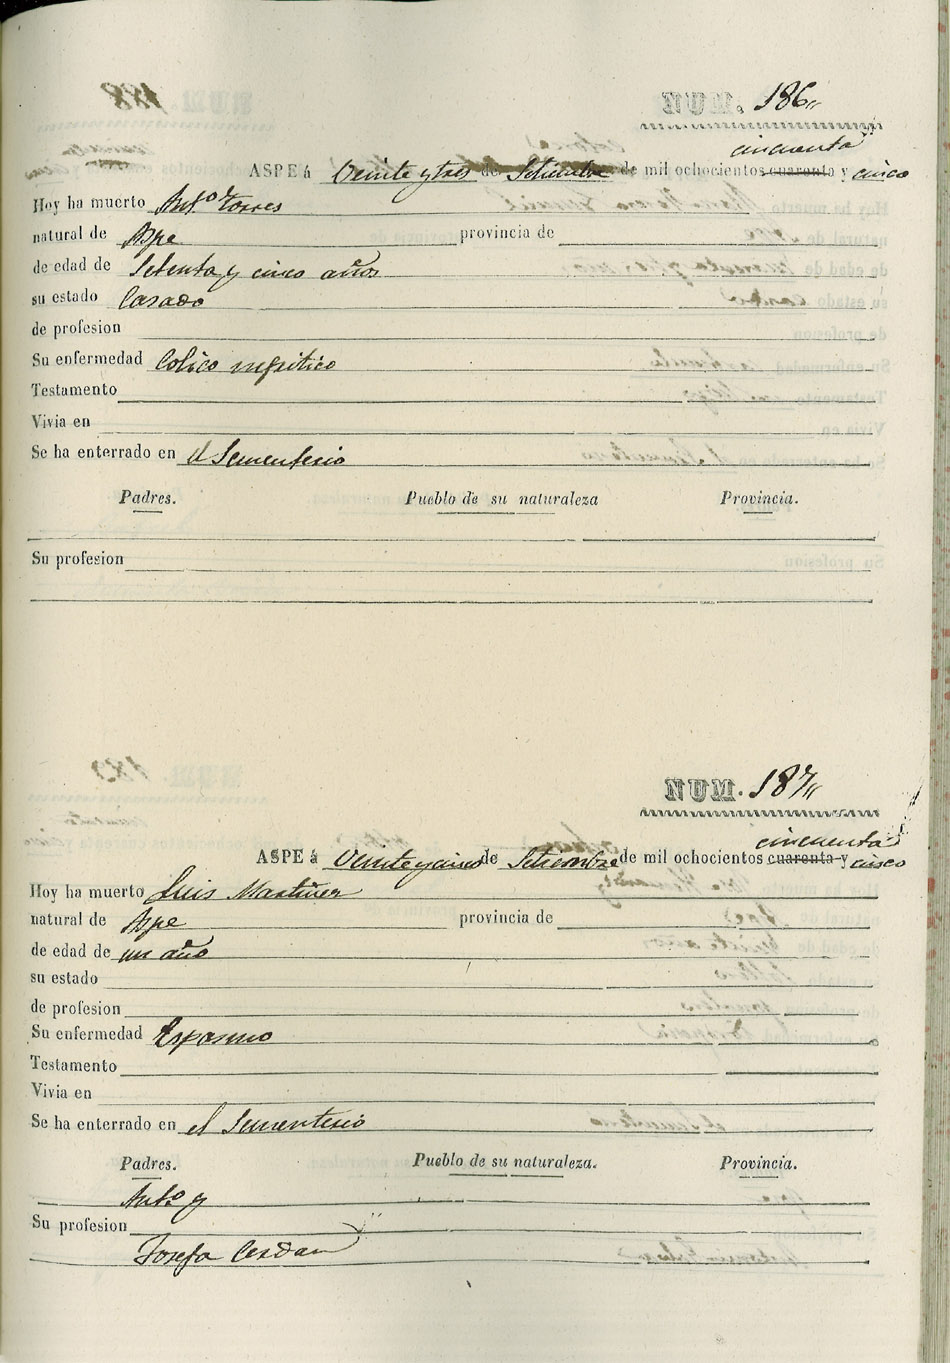 NUM. 186
cincuenta
ASPE á Veinte y tres de Setiembre de mil ochocientos cuarenta y cinco
Hoy ha muerto Antº Torres
natural de Aspe provincia de
de edad de Setenta y cinco años
su estado Casado
de profesion
Su enfermedad Colico nefritico
Testamento
Vivia en
Se ha enterrado en el Sementerio
Padres. Pueblo de su naturaleza Provincia.
Su profesion
NUM. 187
cincuenta
ASPE á Veinte y cinco de Setiembre de mil ochocientos cuarenta y cinco
Hoy ha muerto Luis Martinez
natural de Aspe provincia de
de edad de un año
su estado
de profesion
Su enfermedad Espasmo
Testamento
Vivia en
Se ha enterrado en el Sementerio
Padres. Pueblo de su naturaleza. Provincia.
Antº y
Su profesion
Josefa Cerdan